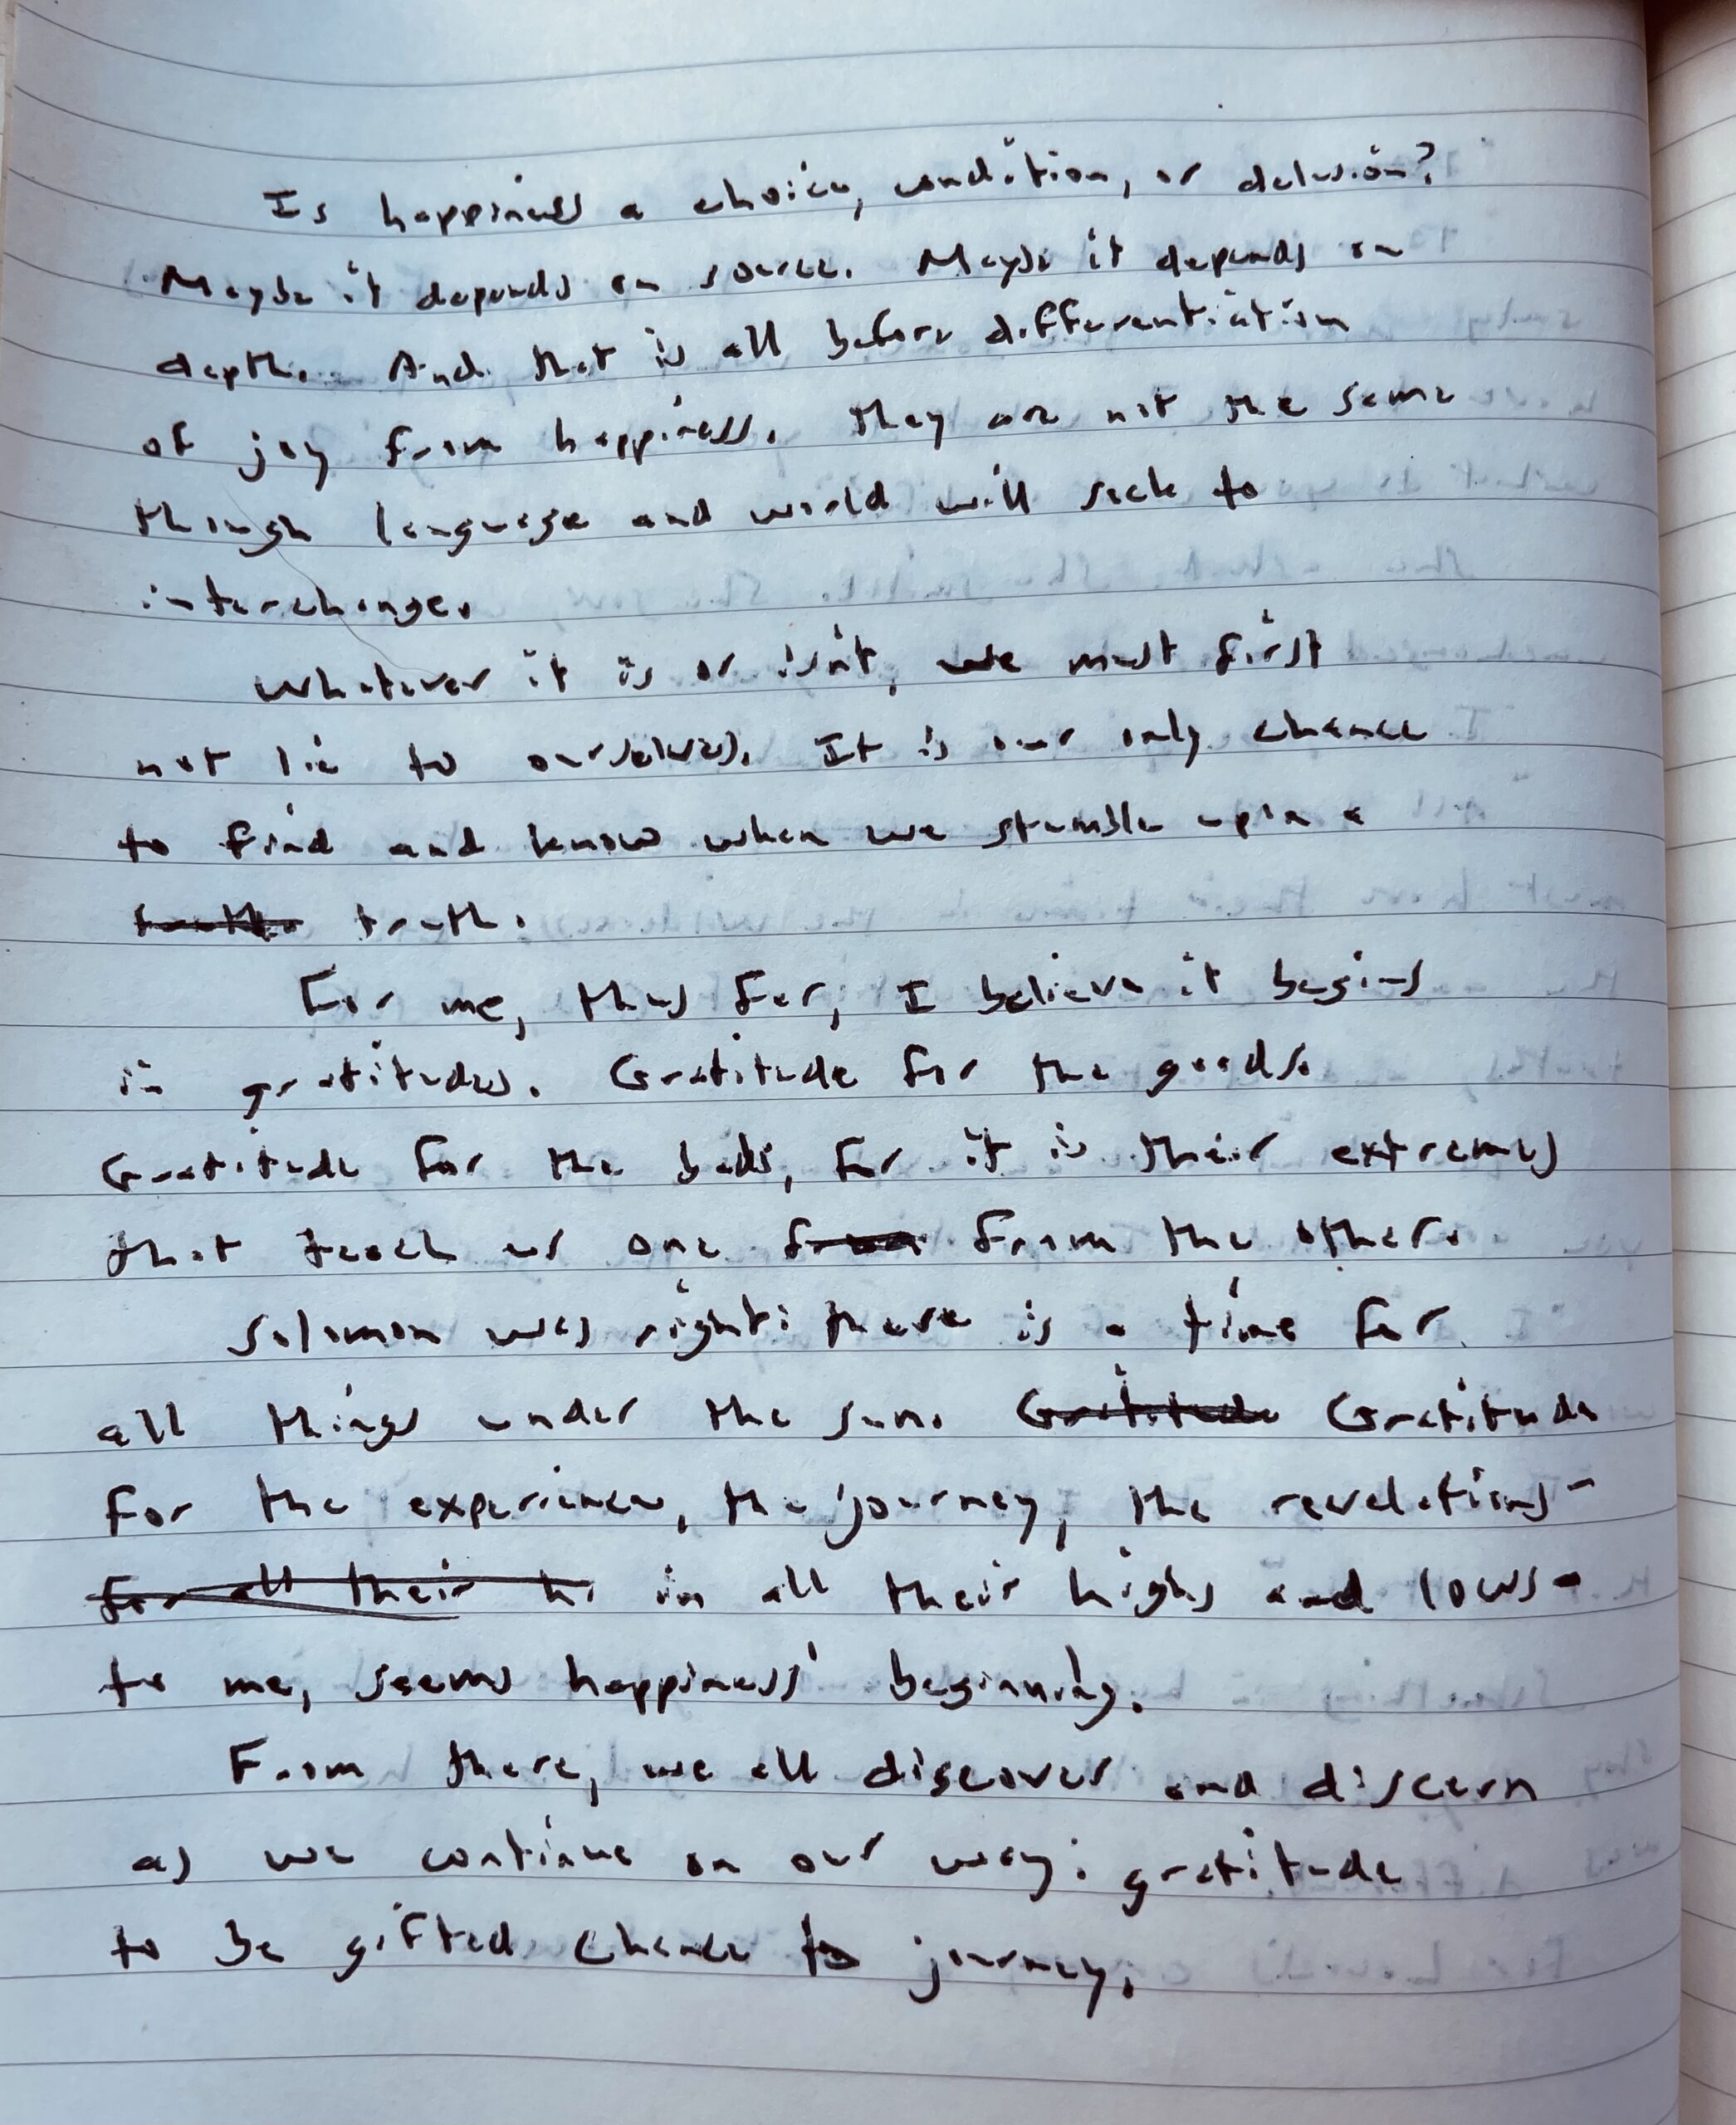 Is happiness a choice, condition, or delusion?
Maybe it depends on source. Maybe it depends on
depth. And that is all before differentiation
of joy from happiness. They are not the same
though language and world will seek to
interchange.
Whatever it is or isn't, we must first
not lie to ourselves. It is our only chance
to find and know when we stumble upon a
truth truth.
For me, thus far, I believe it begins
in gratitudes. Gratitude for the goods.
Gratitude for the bads, for it is their extremes
that teach us one from from the other.
Solomon was right: there is a time for
all things under the sun. Gratitude Gratitude
for the experience, the journey, the revelations-
for all their hi in all their highs and lows-
to me, seems happiness' beginning.
From there, we all discover and discern
as we continue on our way: gratitude
to be gifted chance to journey.